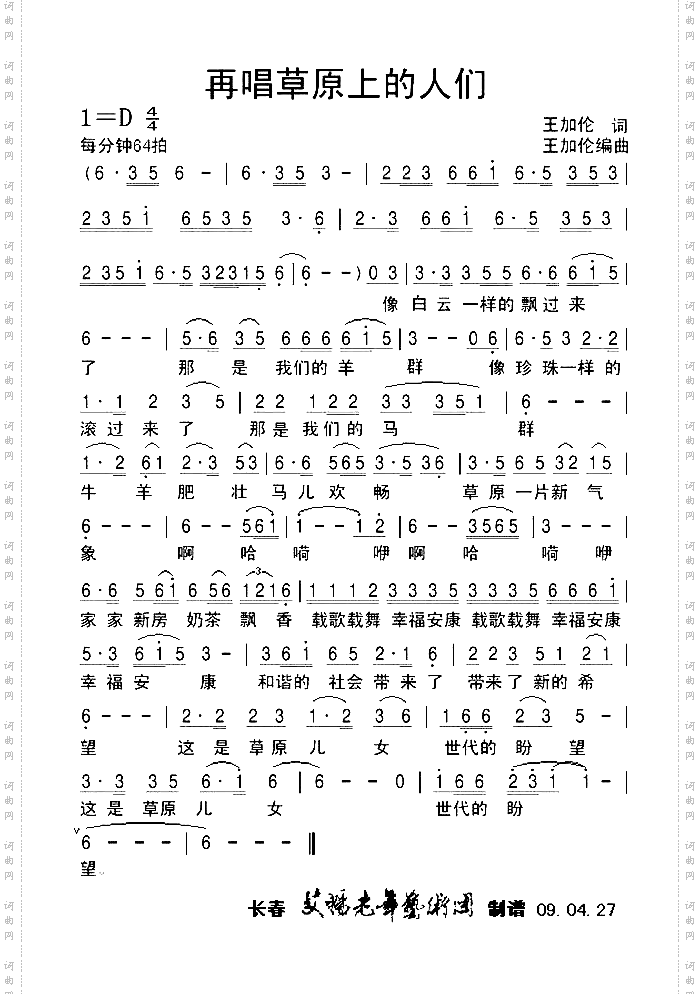 再唱草原上的人们
1=D 4/4
王加伦 词
每分钟64拍
王加伦编曲
(6·35 6- | 6·35 3- | 2·3 661 6·5 353 |
2351 6535 3·6 | 2·3 661 6·5 353 |
2351 6·5 323156 | 6--)03 | 3·3 355 6·6 615 |
像 白 云 一样的 飘 过 来
6--- | 5·6 35 666 615 | 3--06 | 6·5 32·2 |
了 那 是 我们的 羊 群 像 珍 珠一样 的
1·1 2 3 5 | 22 122 33 351 | 6--- |
滚 过 来 了 那 是 我 们 的 马 群
1·2 61 2·3 53 | 6·6 565 3·5 36 | 3·5 65 32 15 |
牛 羊 肥 壮 马 儿 欢 畅 草 原 一片 新 气
6--- | 6--561 | 1--12 | 6--3565 | 3--- |
象 啊 哈 嗬 咿 啊 哈 嗬 咿
6·6 561 6 56 1216 | 1112 3335 3335 6661 |
家 家 新房 奶茶 飘 香 载歌载舞 幸福安康 载歌载舞 幸福安康
5·3 615 3- | 361 65 2·1 6 | 223 51 21 |
幸 福 安 康 和谐的 社会 带 来 了 带来了 新的 希
6--- | 2·2 223 1·2 36 | 166 23 5- |
望 这 是 草 原 儿 女 世代的 盼 望
3·3 355 6·1 6 | 6--0 | 166 231 1- |
这 是 草 原 儿 女 世代的 盼
6--- | 6--- ‖
望。
长春 艾孺老年艺術团 制谱 09.04.27
词曲网